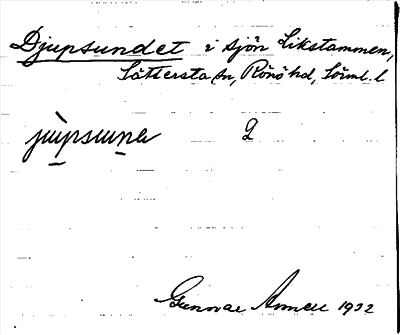 Djupsundet i sjön Likstammen,
Sättersta sn, Rönö hd, Sörml. l
jùpsuna 2
Gunnar Annell 1932